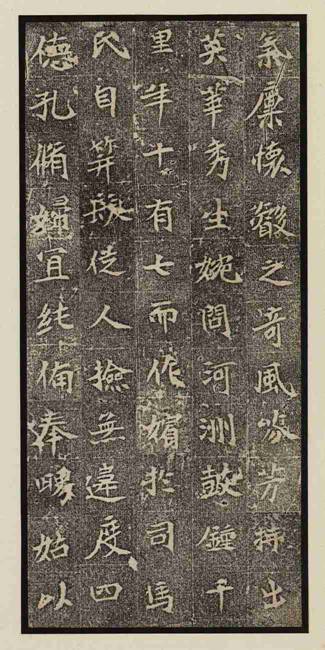 氣稟懷叡之奇風喙芳特出
英華秀生婉問河洲鼓鍾千
里年十有七而作嬪於司馬
氏自笄髮從人撿無違度四
德孔脩婦宜純備奉始以